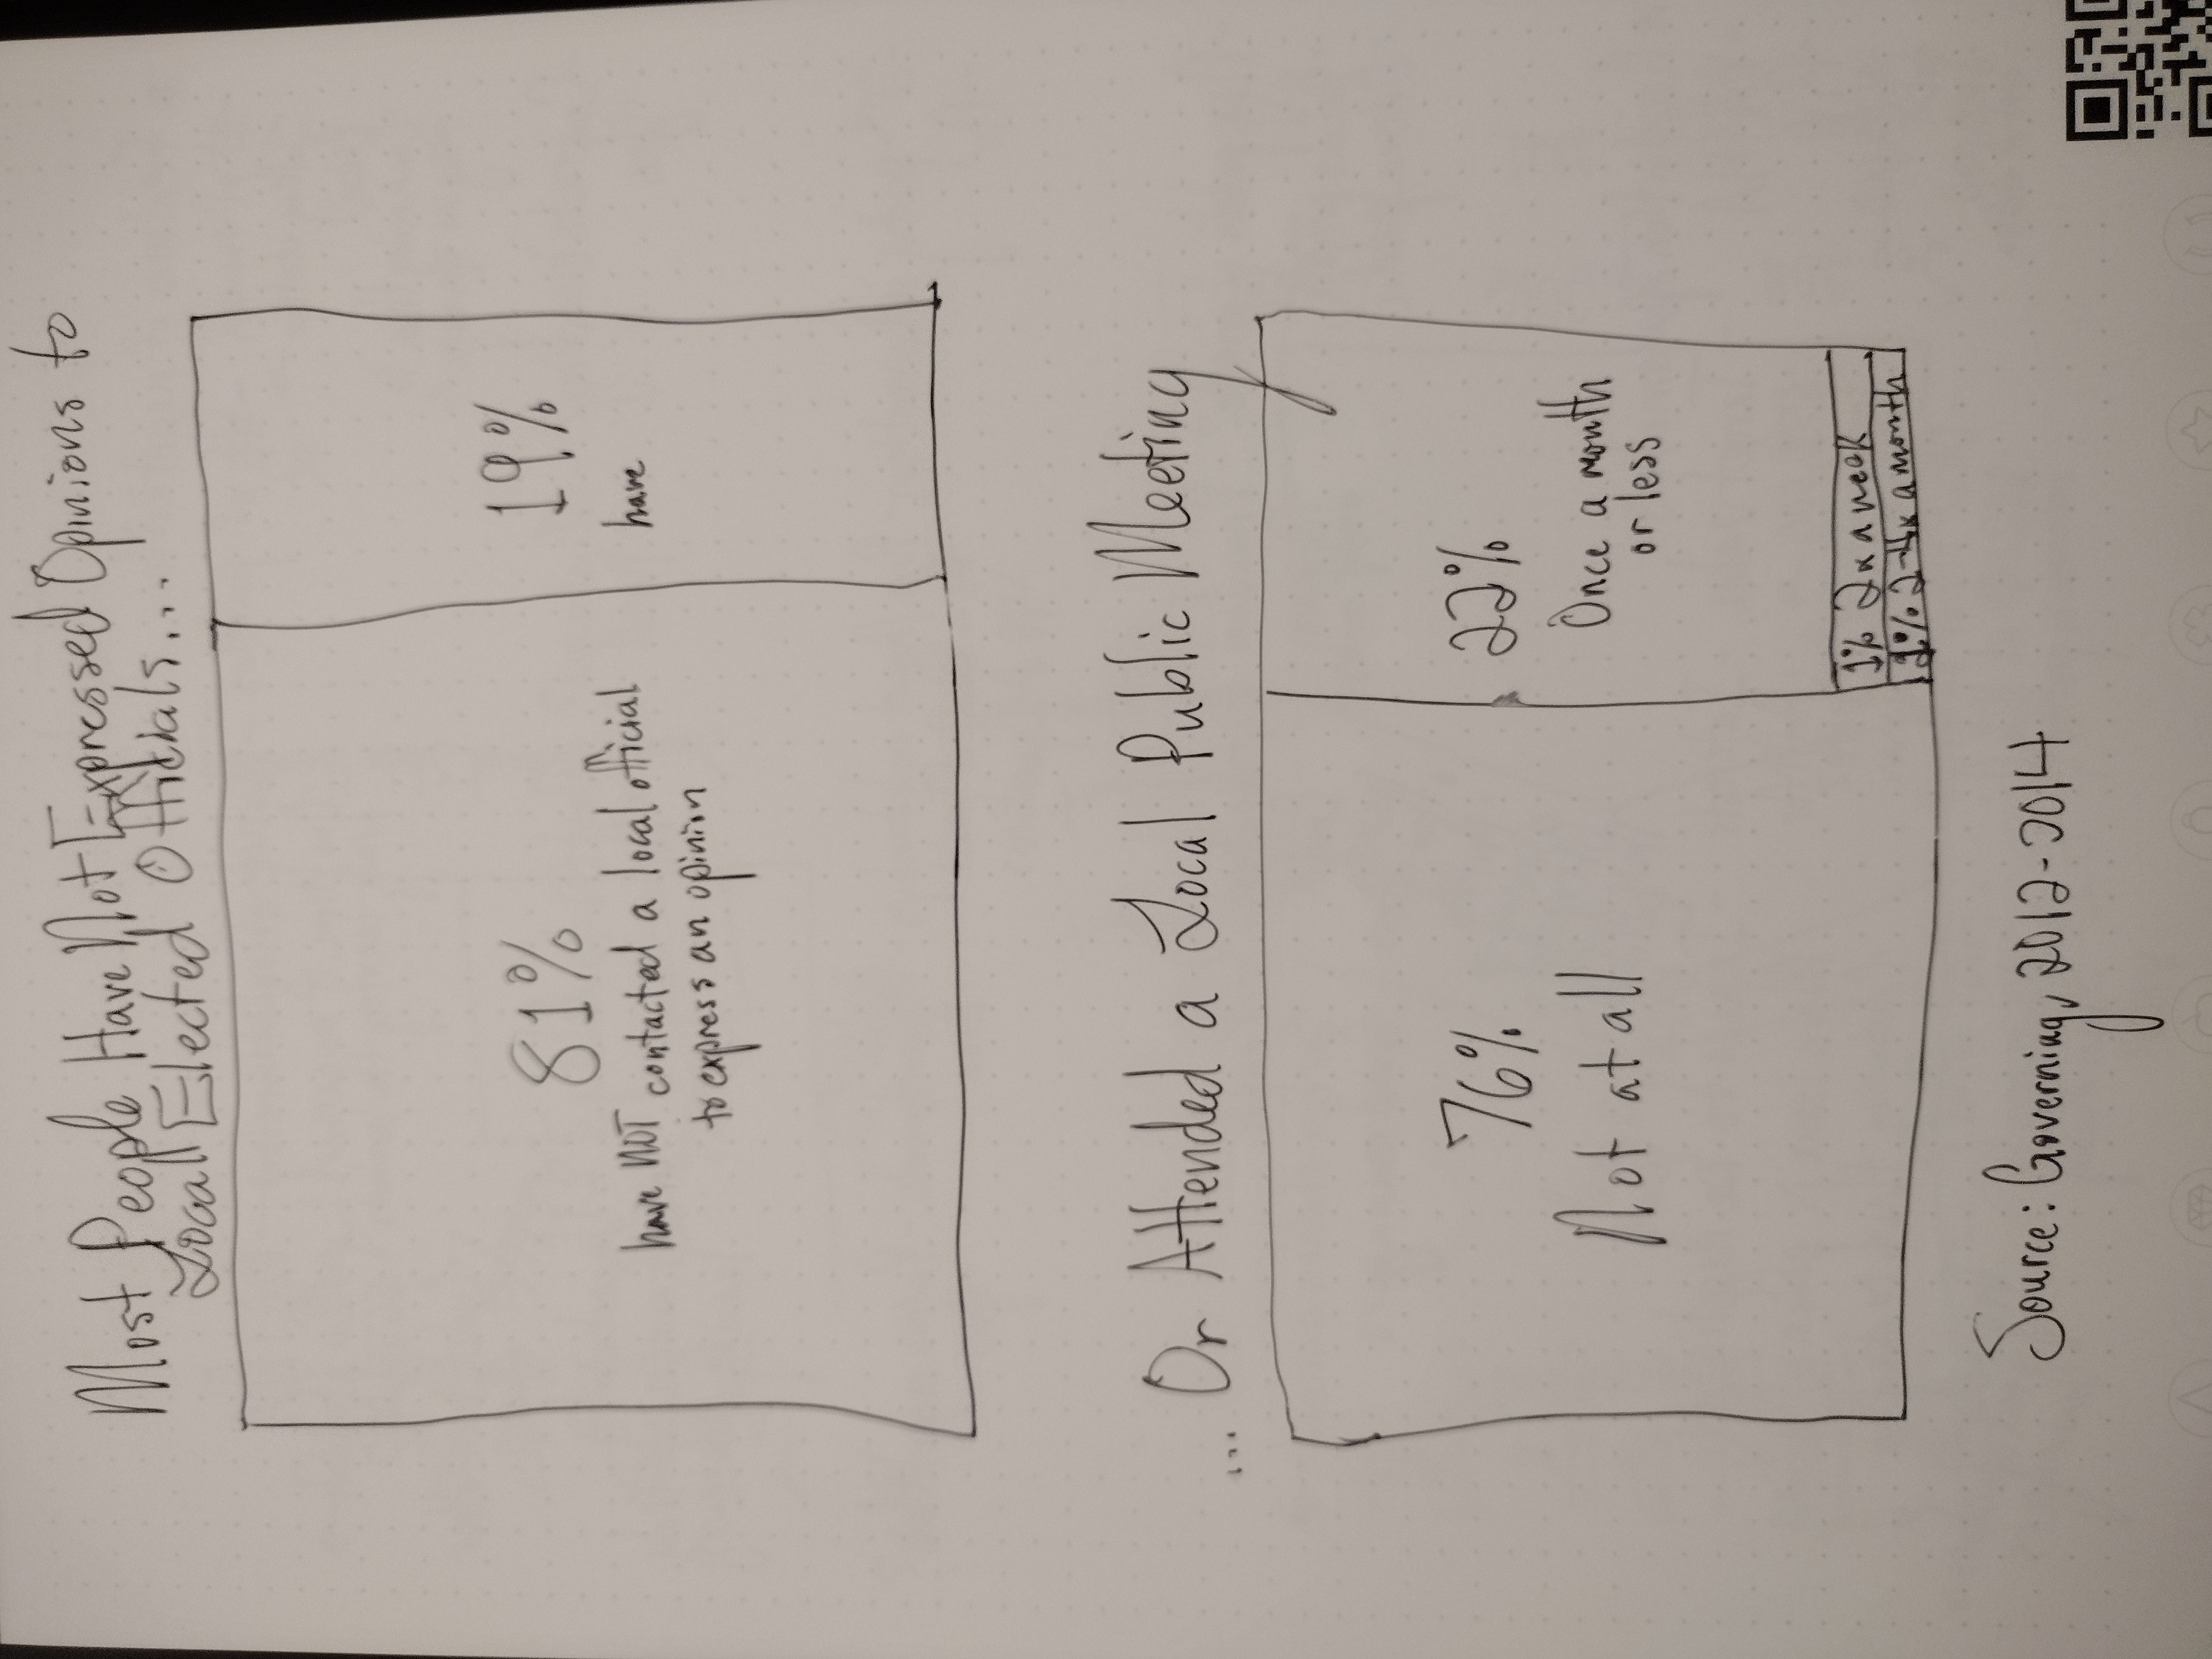 Most People Have Not Expressed Opinions to
Local Elected Officials...
81%
have NOT contacted a local official
to express an opinion
19%
have
... Or Attended a Local Public Meeting
76%
Not at all
22%
Once a month
or less
1% 2x a week
1% 2-4x a month
Source: Governing, 2012-2014